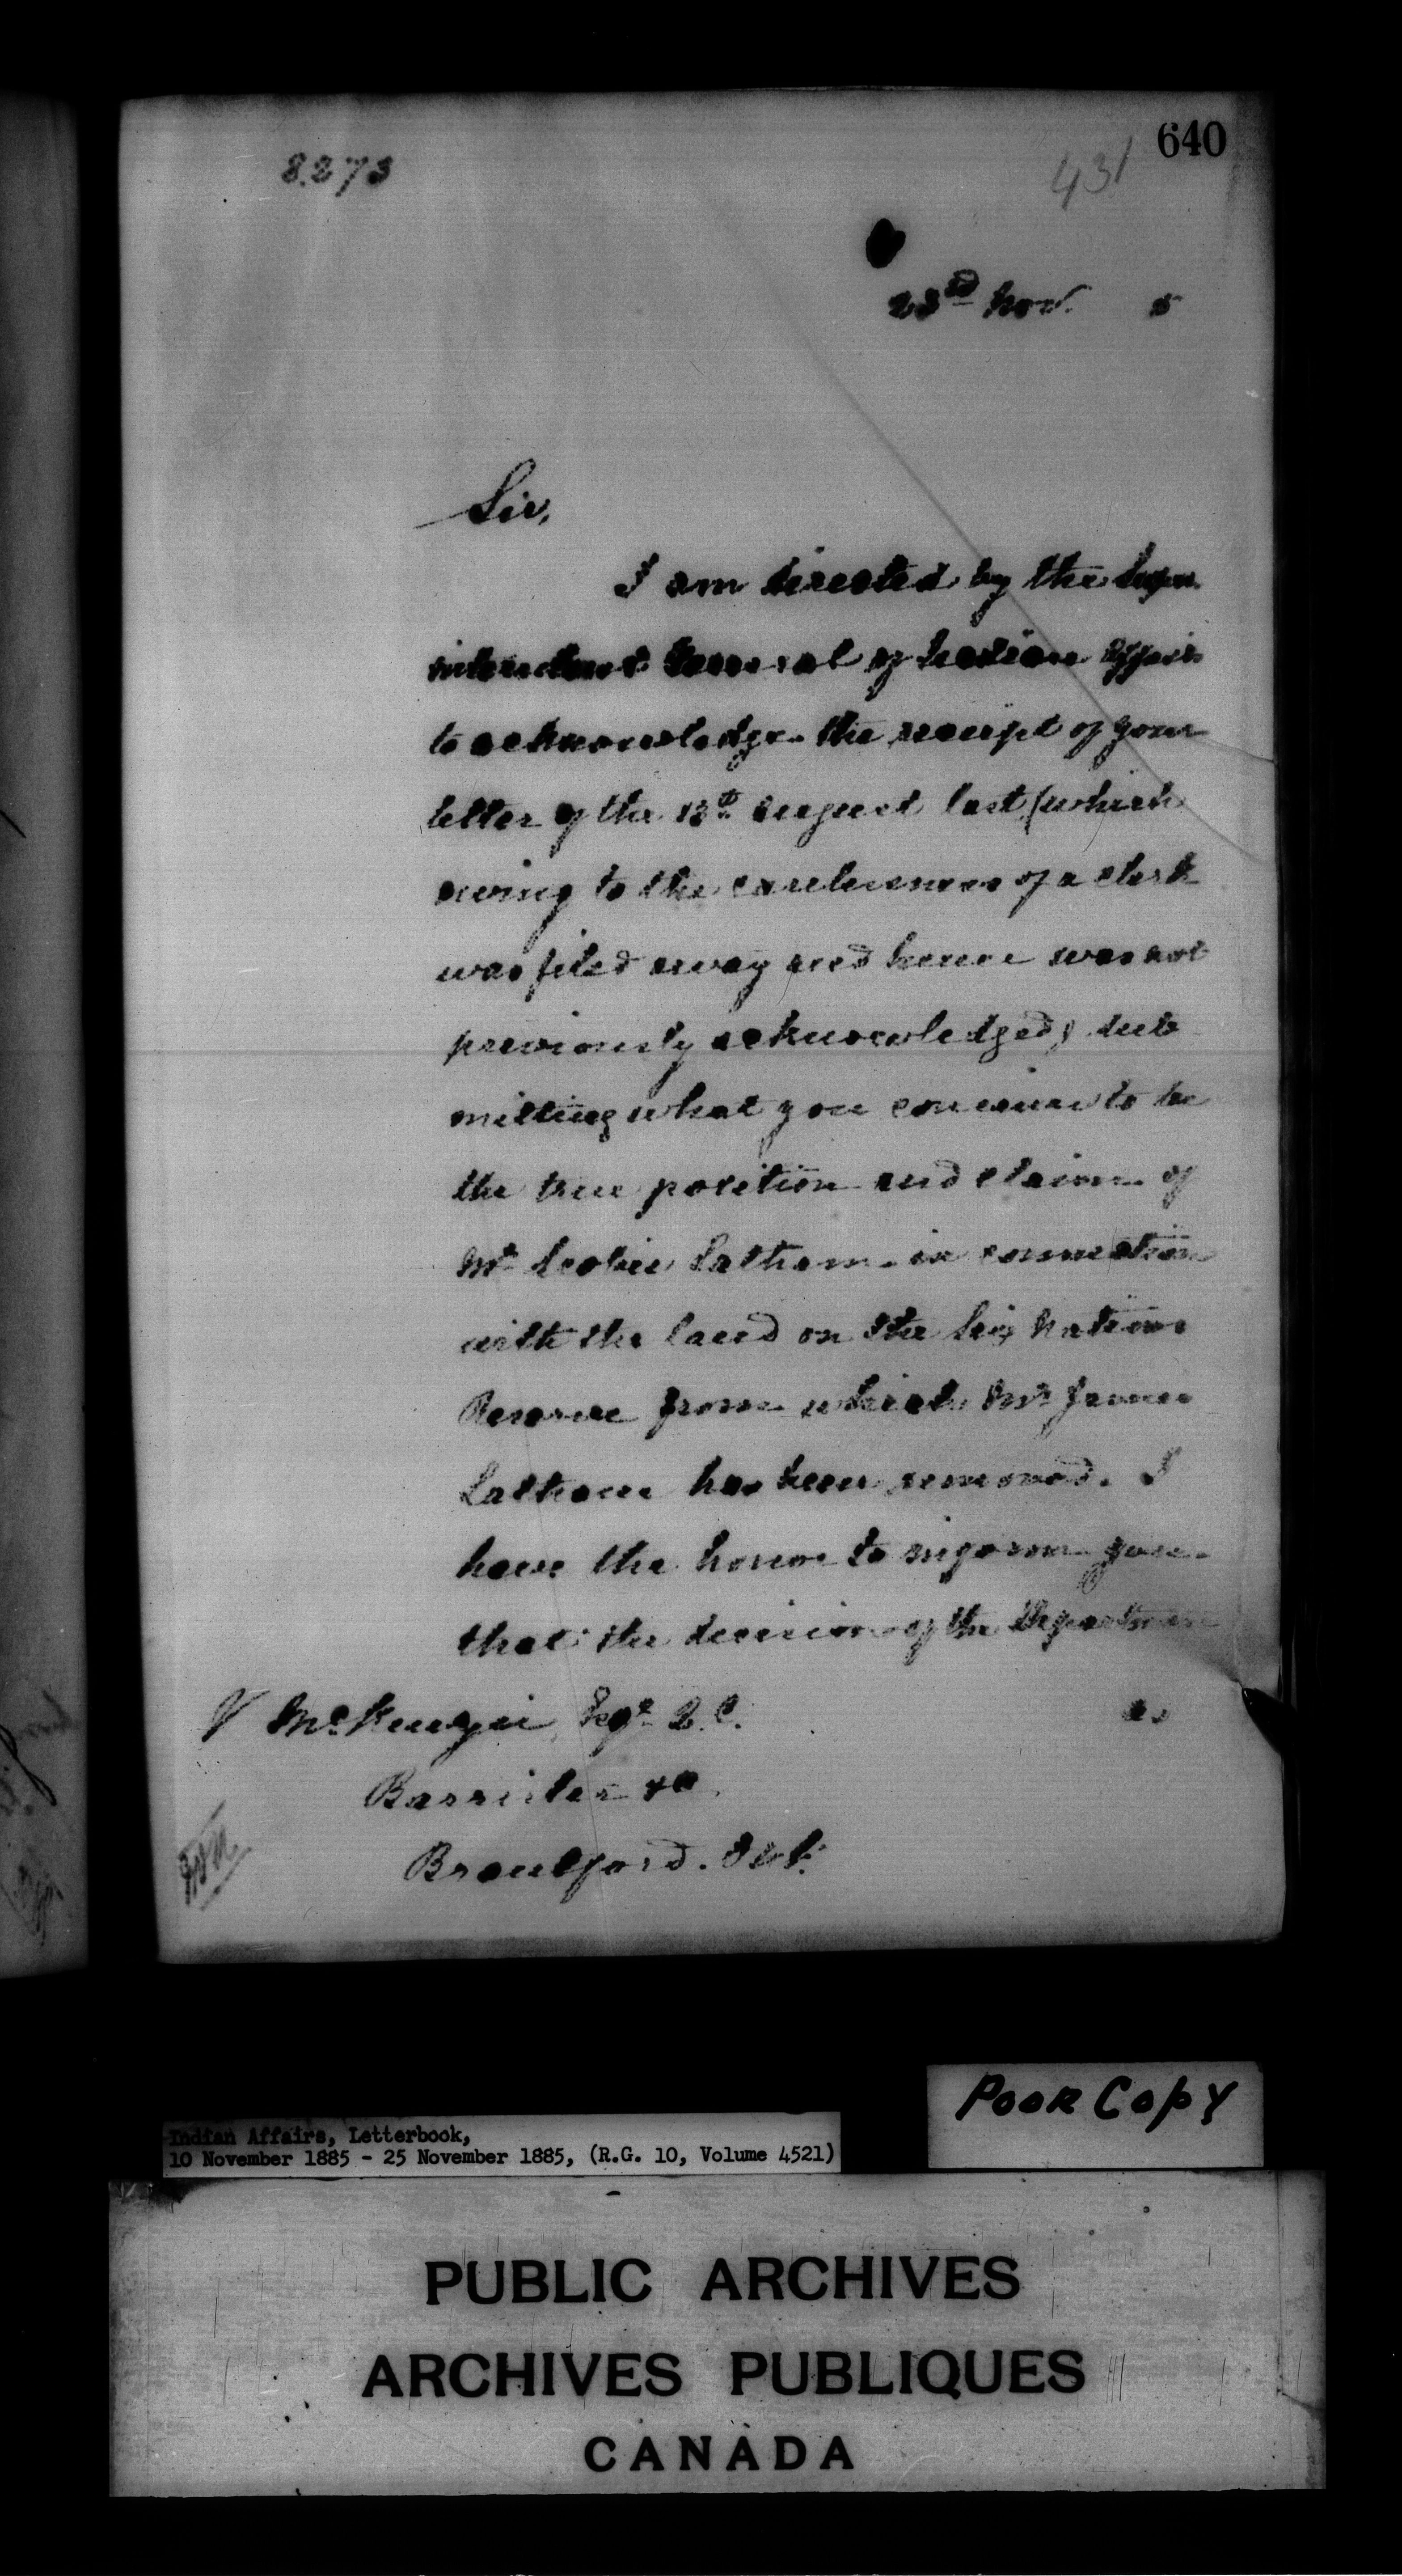 640
431
8273
23rd Nov. 5
Sir,
I am directed by the Super
intendent General of Indian Affairs
to acknowledge the receipt of your
letter of the 13th August last (which
owing to the carelessness of a clerk
was filed away and hence was not
previously acknowledged) sub
mitting what you conceive to be
the true position and claim of
Mr Latham in connection
with the land on the Six Nations
Reserve from which Mr James
Latham has been removed. I
have the honor to inform you
that the decision of the Department
as
McKenzie, Esqr. Q.C.
Barrister &c
Brantford. Ont.
Poor Copy
Indian Affairs, Letterbook,
10 November 1885 - 25 November 1885, (R.G. 10, Volume 4521)
PUBLIC ARCHIVES
ARCHIVES PUBLIQUES
CANADA